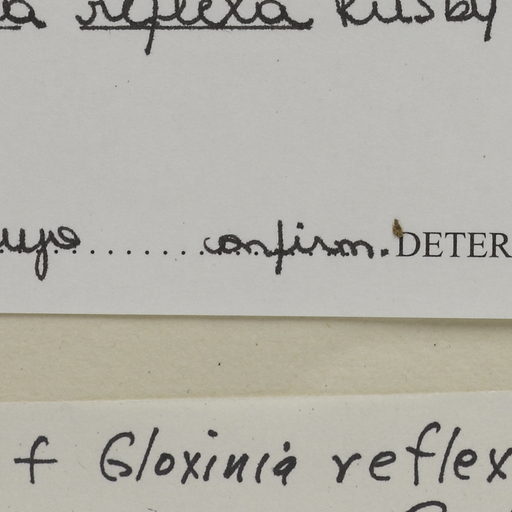 a reflexa Rusby
uyo........confirm. DETER
f Gloxinia reflex